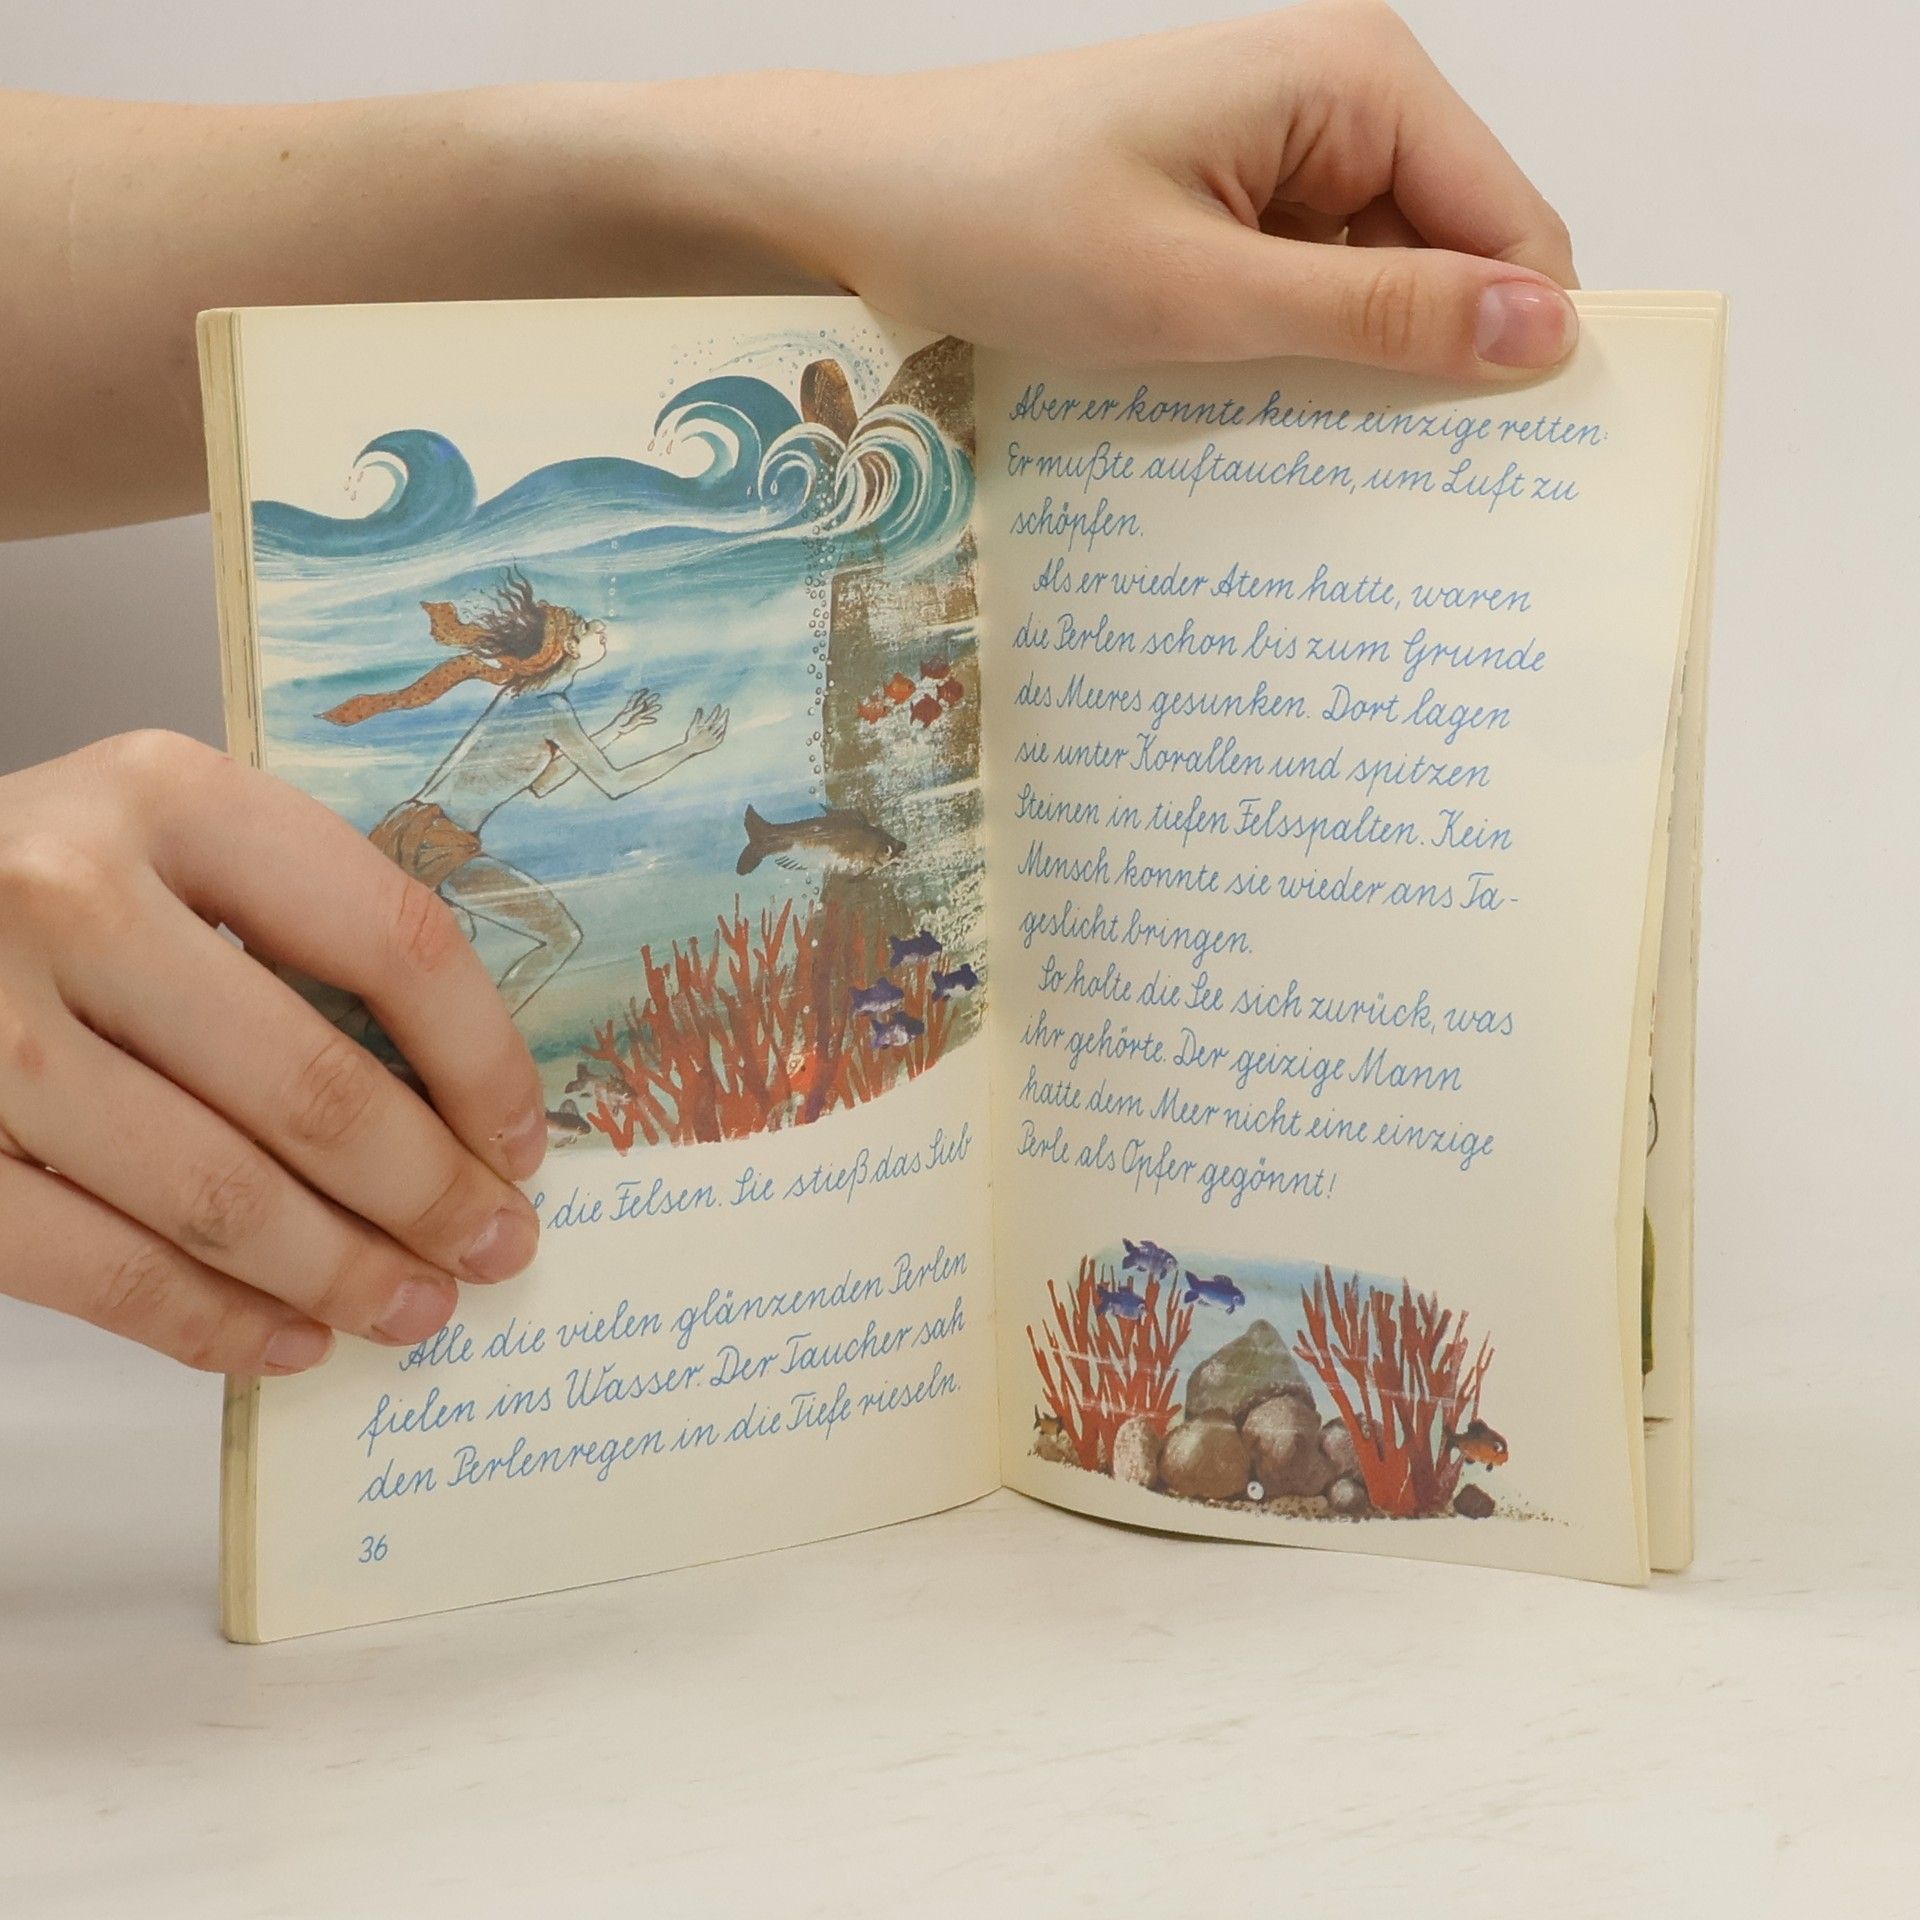 die Felsen. Sie stieß das Sieb
Alle die vielen glänzenden Perlen
fielen ins Wasser. Der Taucher sah
den Perlenregen in die Tiefe rieseln.
36
Aber er konnte keine einzige retten:
Er mußte auftauchen, um Luft zu
schöpfen.
Als er wieder Atem hatte, waren
die Perlen schon bis zum Grunde
des Meeres gesunken. Dort lagen
sie unter Korallen und spitzen
Steinen in tiefen Felsspalten. Kein
Mensch konnte sie wieder ans Ta-
geslicht bringen.
So holte die See sich zurück, was
ihr gehörte. Der geizige Mann
hatte dem Meer nicht eine einzige
Perle als Opfer gegönnt!